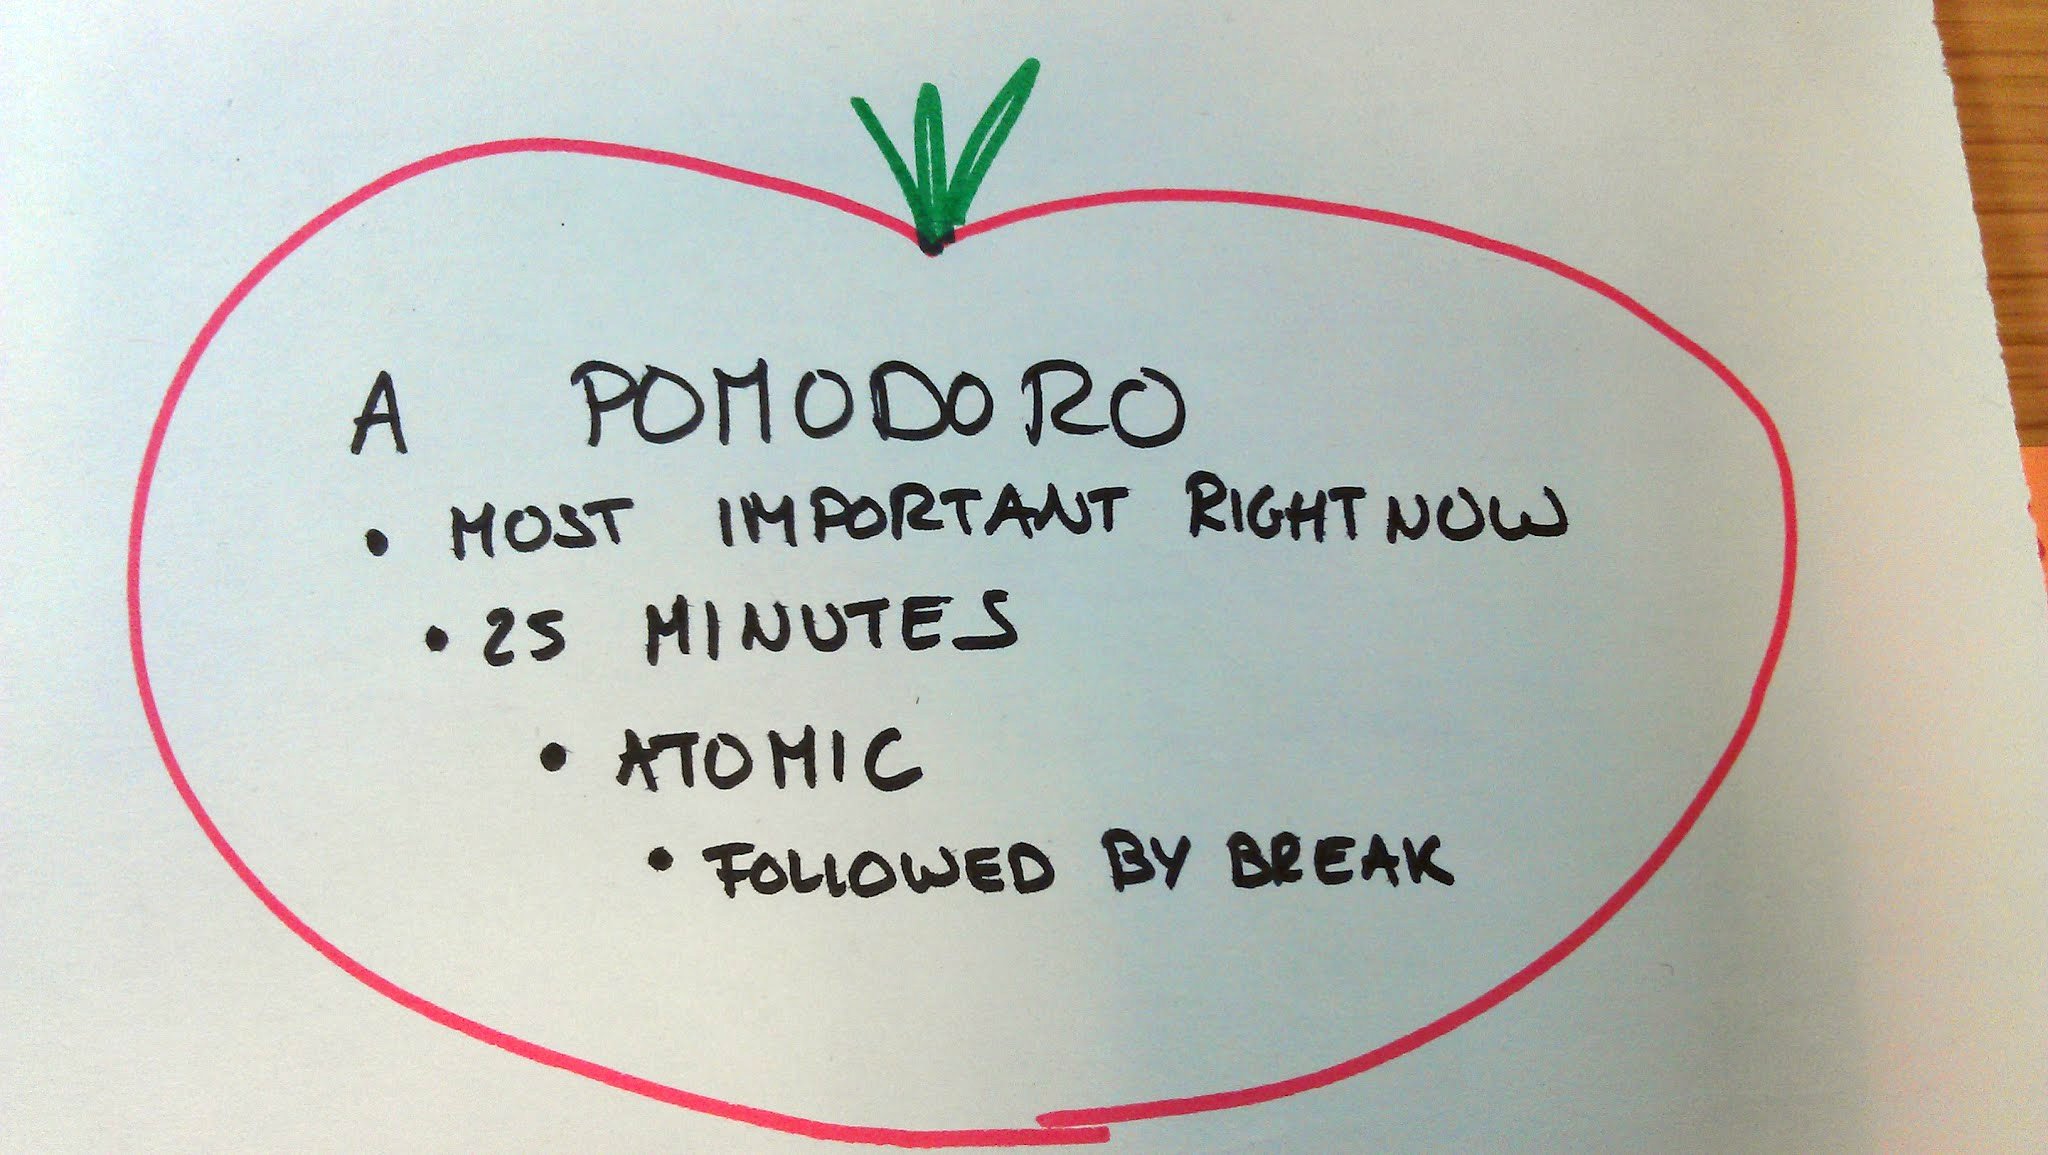 A POMODORO
• MOST IMPORTANT RIGHT NOW
• 25 MINUTES
• ATOMIC
• FOLLOWED BY BREAK